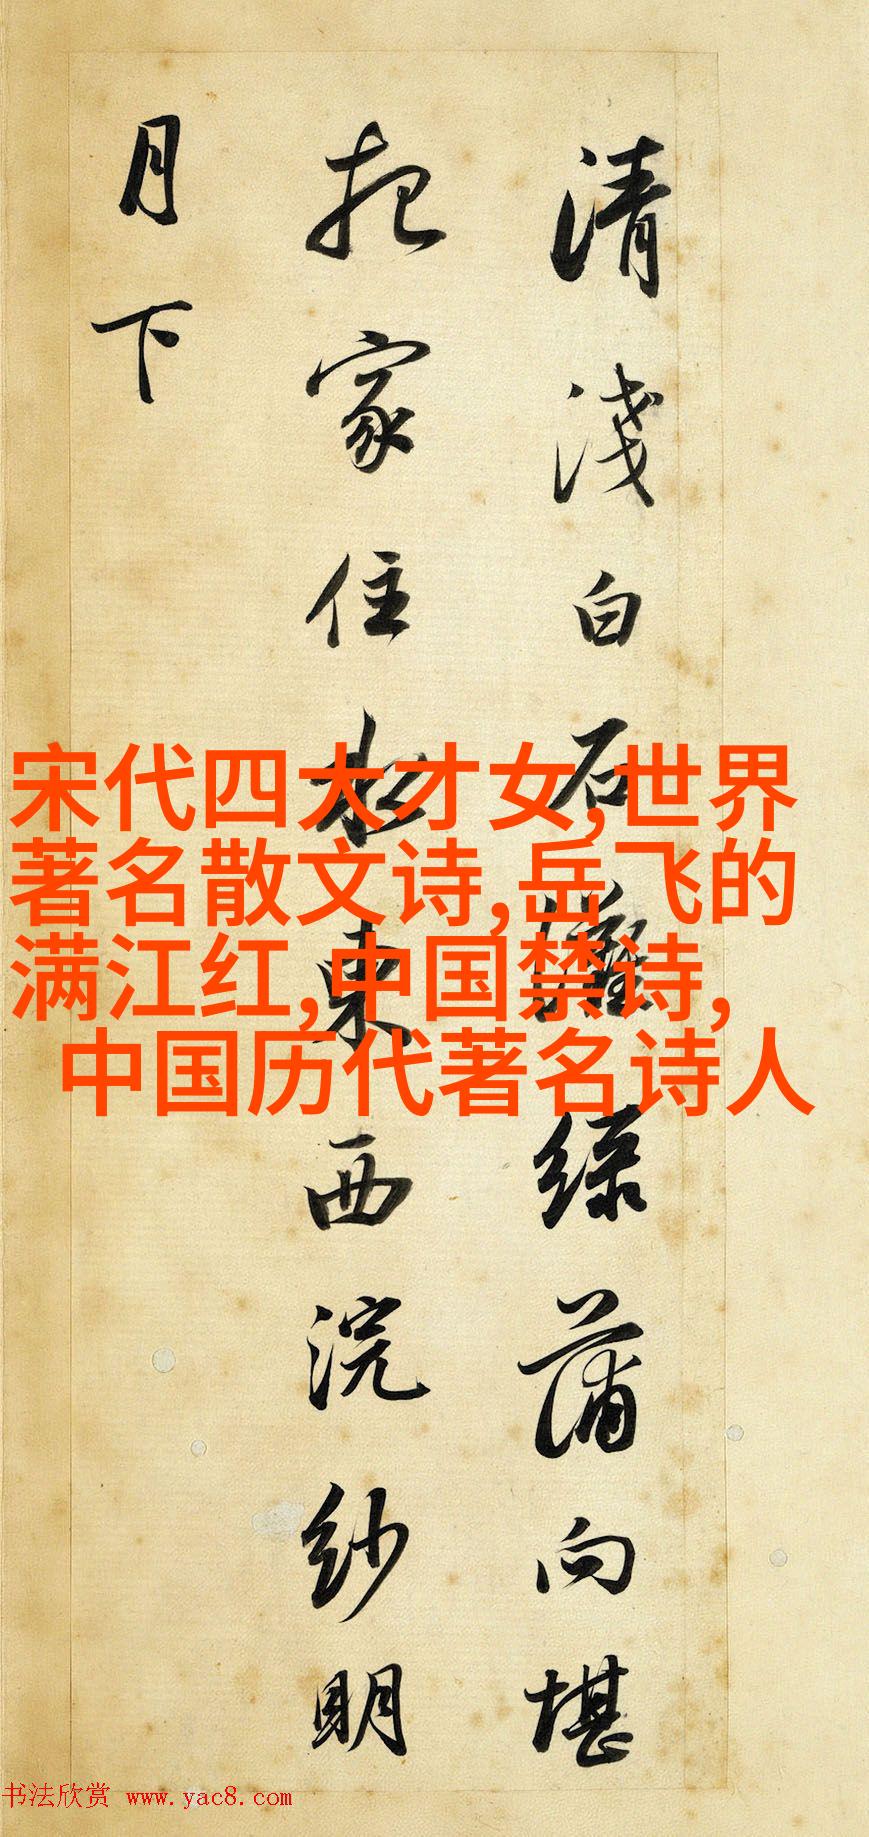 清淺白石灘綠蒲向堪
把家住水東西浣紗明
月下
宋代四大才女,世界
著名散文诗,岳飞的
满江红,中国禁诗,
中国历代著名诗人
书法欣赏 www.yac8.com